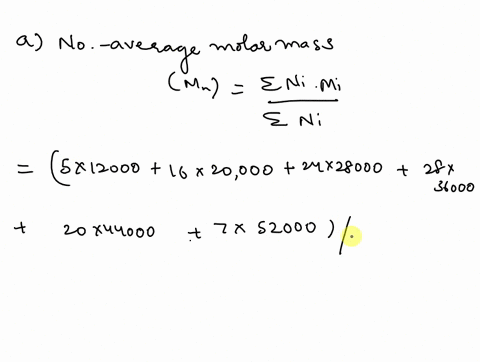 a) No.-average molar mass
(Mn) = ΣNi.Mi
ΣNi
= (5×12000 + 16×20,000 + 24×28000 + 28×
36000
+ 20×44000 + 7×52000) /